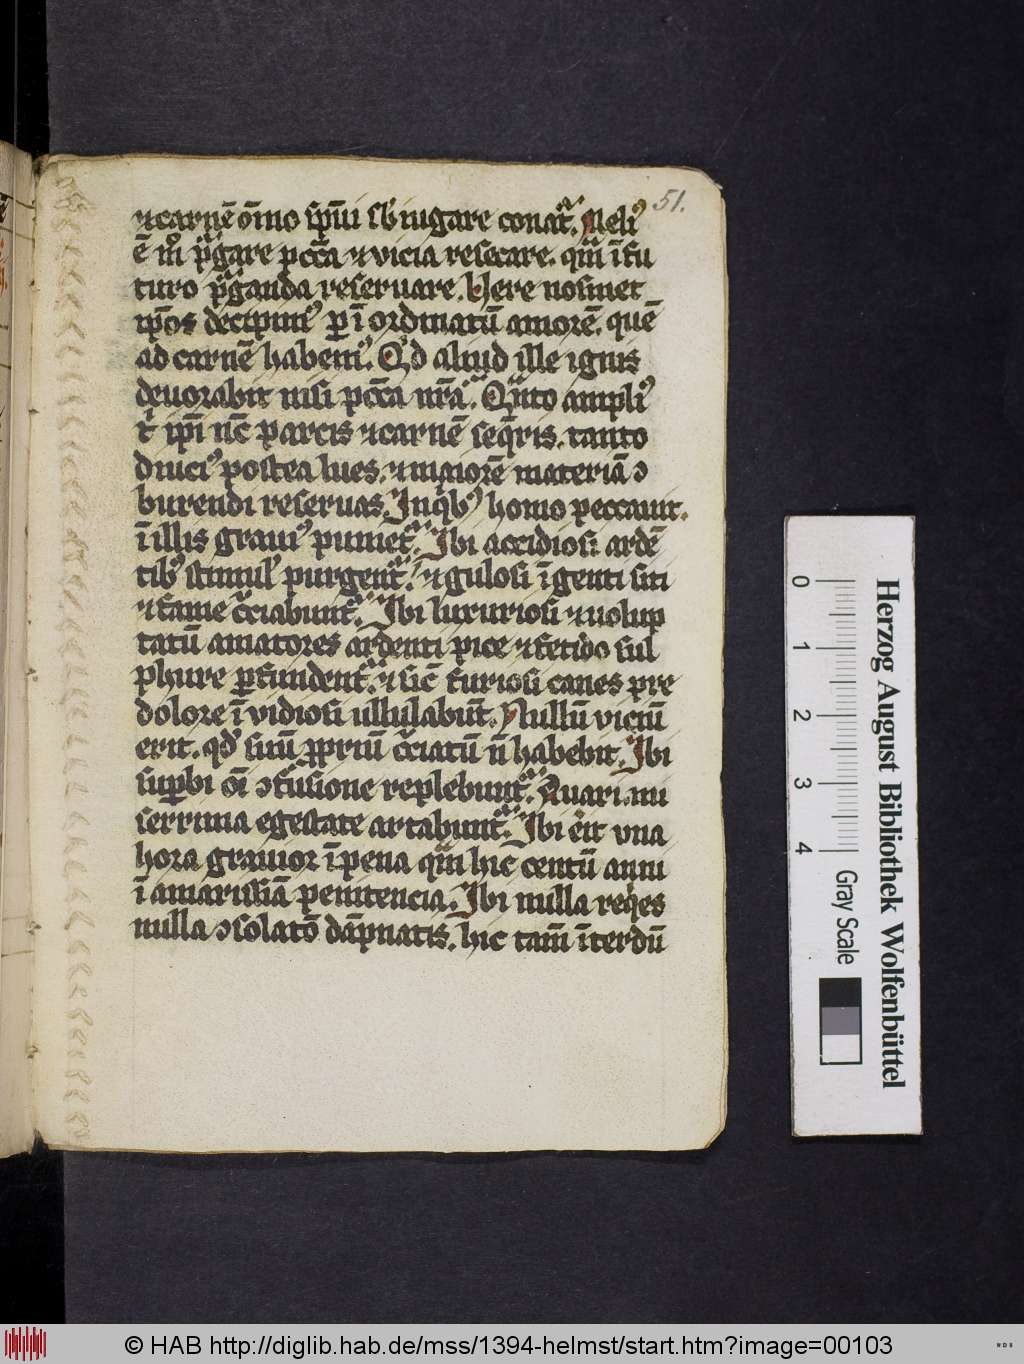 51.
⁊ carnē oīno spūi sb̄iugare conat᷑. Meliꝰ
ē m̊ pᷓgare pccā ⁊ vicia resecare. qm̄ ī fu
turo pᷓganda reseruare. Vere nosmet
ip̄os decipimꝰ ꝑ īordinatū amorē. quē
ad carnē habemꝰ. Qͥd aliud ille ignis
deuorabit nisi pccā nr̄a. Qᷓnto ampliꝰ
t̉ ip̄i nc̄ parcis ⁊ carnē seqͥris. tanto
diuciꝰ postea lues. ⁊ maiorē materiā ↄ
burendi reseruas. In qͥbꝰ homo peccauit.
ī illis grauiꝰ puniet᷑. Ibi accidiosi ardē
tibꝰ stimul̉ purgent᷑. ⁊ gulosi īgenti siti
⁊ fame cͬciabunt᷑. Ibi luxuriosi ⁊ volup
tatū amatores ardenti pice ⁊ fetido sul
phure ꝑfundent᷑. ⁊ sic̄ furiosi canes pre
dolore īvidiosi ullulabūt. Nullū viciū
erit. qd̄ suū ꝓpriū cͬciatū n̄ habebit. Ibi
suꝑbi oī ↄfusione replebunt᷑. Auari mi
serrima egestate artabunt᷑. Ibi erit vna
hora grauior ī pena qm̄ hic centū anni
ī amarissīa penitencia. Ibi nulla reqͥes
nulla ↄsolatō dāpnatis. hic tam̄ īterdū
Herzog August Bibliothek Wolfenbüttel
0 1 2 3 4
Gray Scale
© HAB http://diglib.hab.de/mss/1394-helmst/start.htm?image=00103